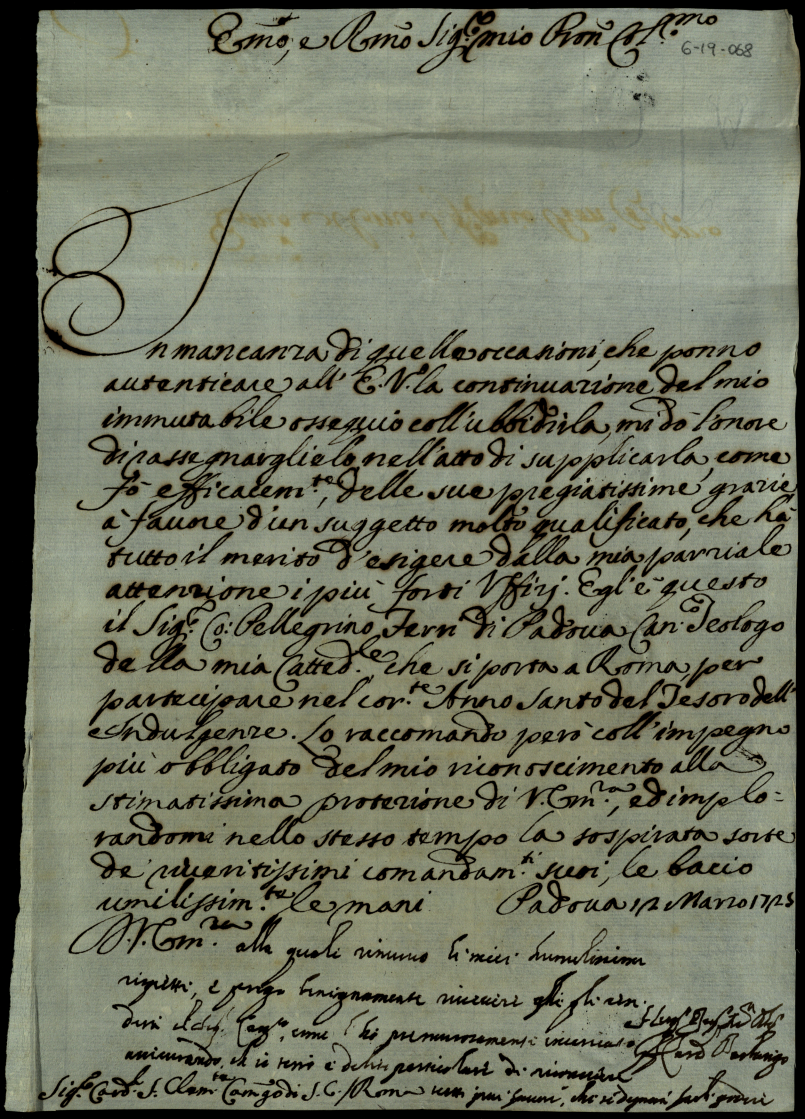 Em̃o, e Rm̃o Sig.r mio Pron Col.mo
6-19-068
In mancanza di quelle occasioni, che ponno
autenticare all' E.V. la continuazione del mio
immutabile ossequio coll'ubbidirla, mi dò l'onore
di rassegnarglielo nell'atto di supplicarla, come
fò efficacem.te, delle sue pregiatissime grazie
à fauore d'un suggetto molto qualificato, che hà
tutto il merito d'esigere dalla mia parziale
attenzione i più forti Vffizj. Egl'è questo
il Sig.r Co: Pellegrino Ferri di Padoua Can.co Teologo
della mia Catted.le che si porta a Roma per
partecipare nel cor.te Anno Santo del Tesoro dell'
Indulgenze. Lo raccomando però coll'impegno
più obbligato del mio riconoscimento alla
stimatissima protezione di V. Em.za, ed implo-
randomi nello stesso tempo la sospirata sorte
de' riueritissimi comandam.ti suoi, le bacio
umilissim.te le mani Padoua 12 Marzo 1725
D. V. Em.za alla quale rinuouo li miei humilissimi
rispetti, e prego benignamente riceuere gli
come l'ho premurosamente incaricato
assicurando
Card Barbarigo
Sig.r Card. S. Clem.te Camgo di S. C. / Roma